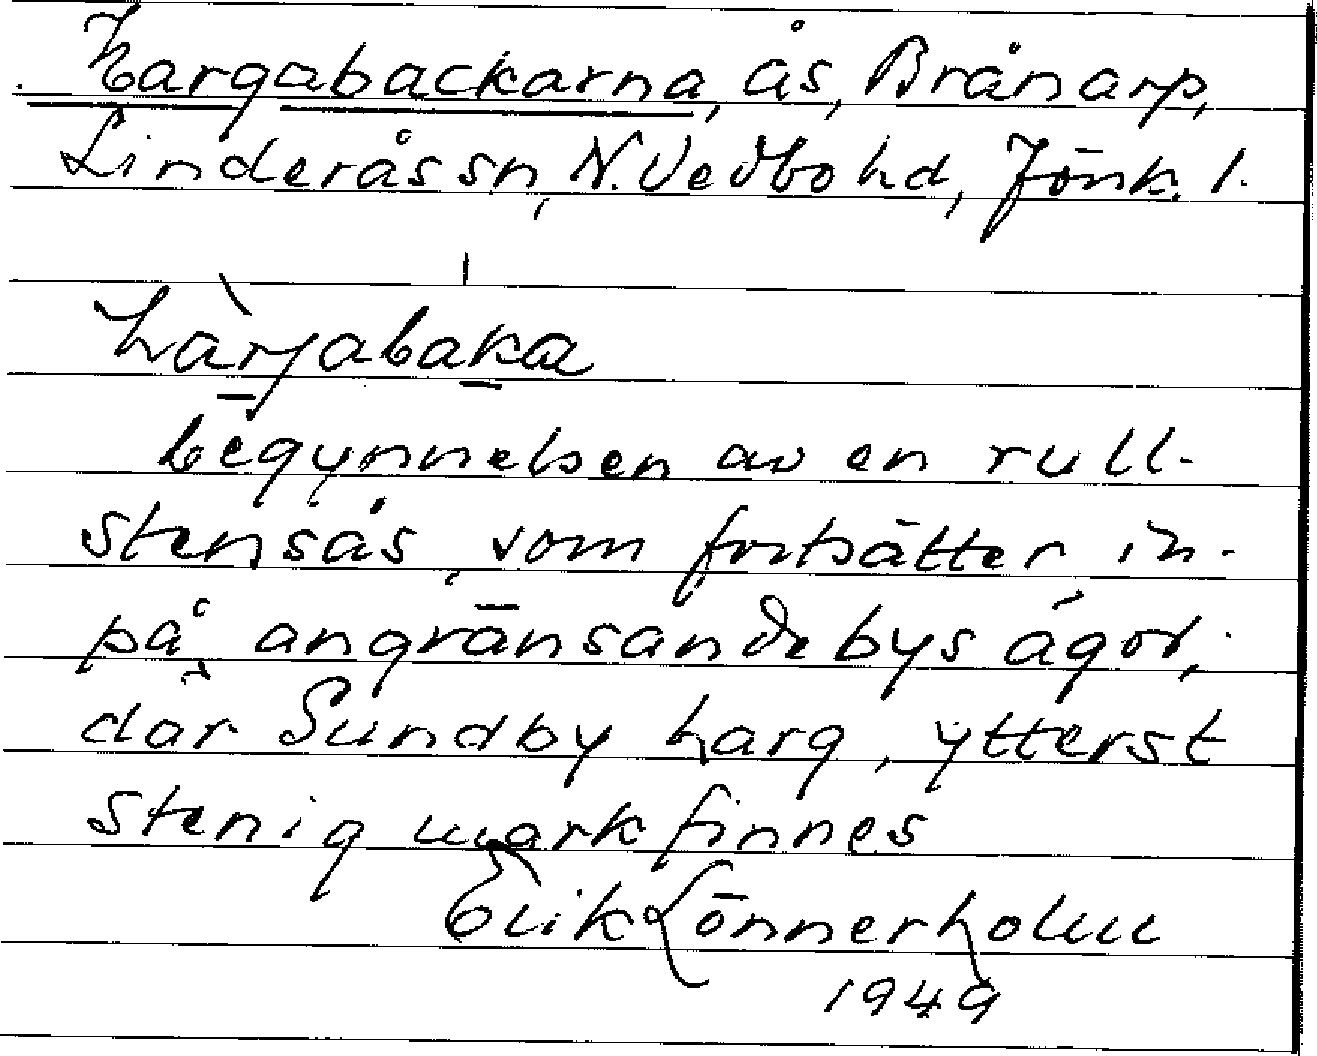 Hargabackarna, ås, Brånarp,
Linderås sn, N. Vedbo hd, Jönk. l.
hàrjabaka
begynnelsen av en rull-
stensås, som fortsätter in-
på angränsande bys ägor,
där Sundby harg, ytterst
stenig mark finnes
Erik Lönnerholm
1949